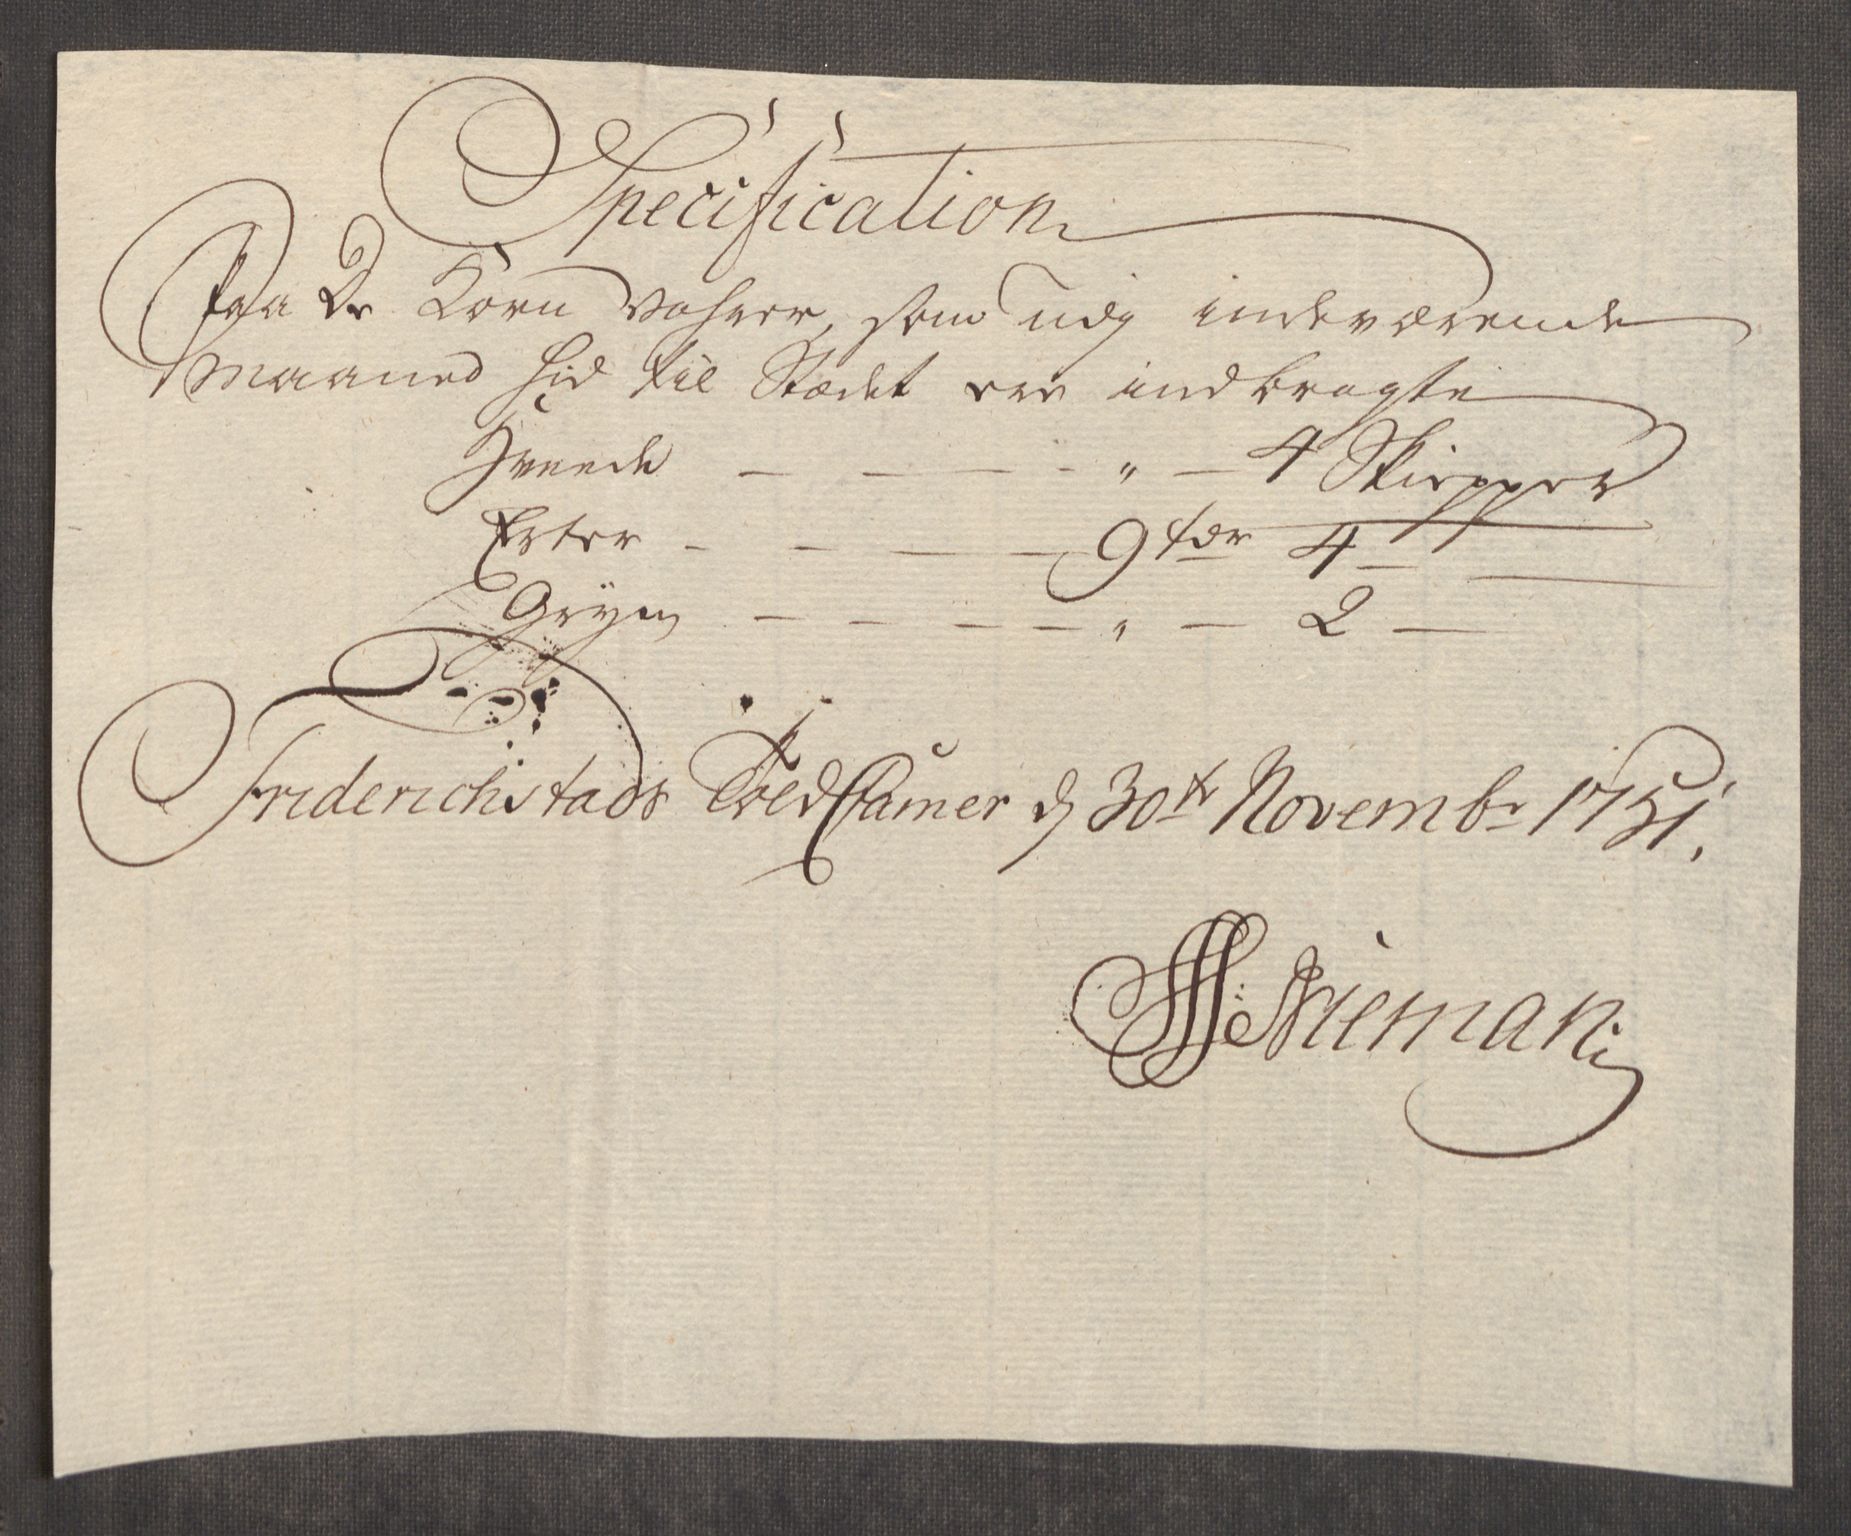 Specification
Paa De Korn Vahrer, som udj indeværende
Maaned hid til Stædet ere indbragte
Hveede — — — — " — 4 Skiepper
Erter — — — — 9 tdr 4 —
Gryn — — — — " — 2 —
Friderichstads Told Camer d 30te Novembr 1751.
Nieman